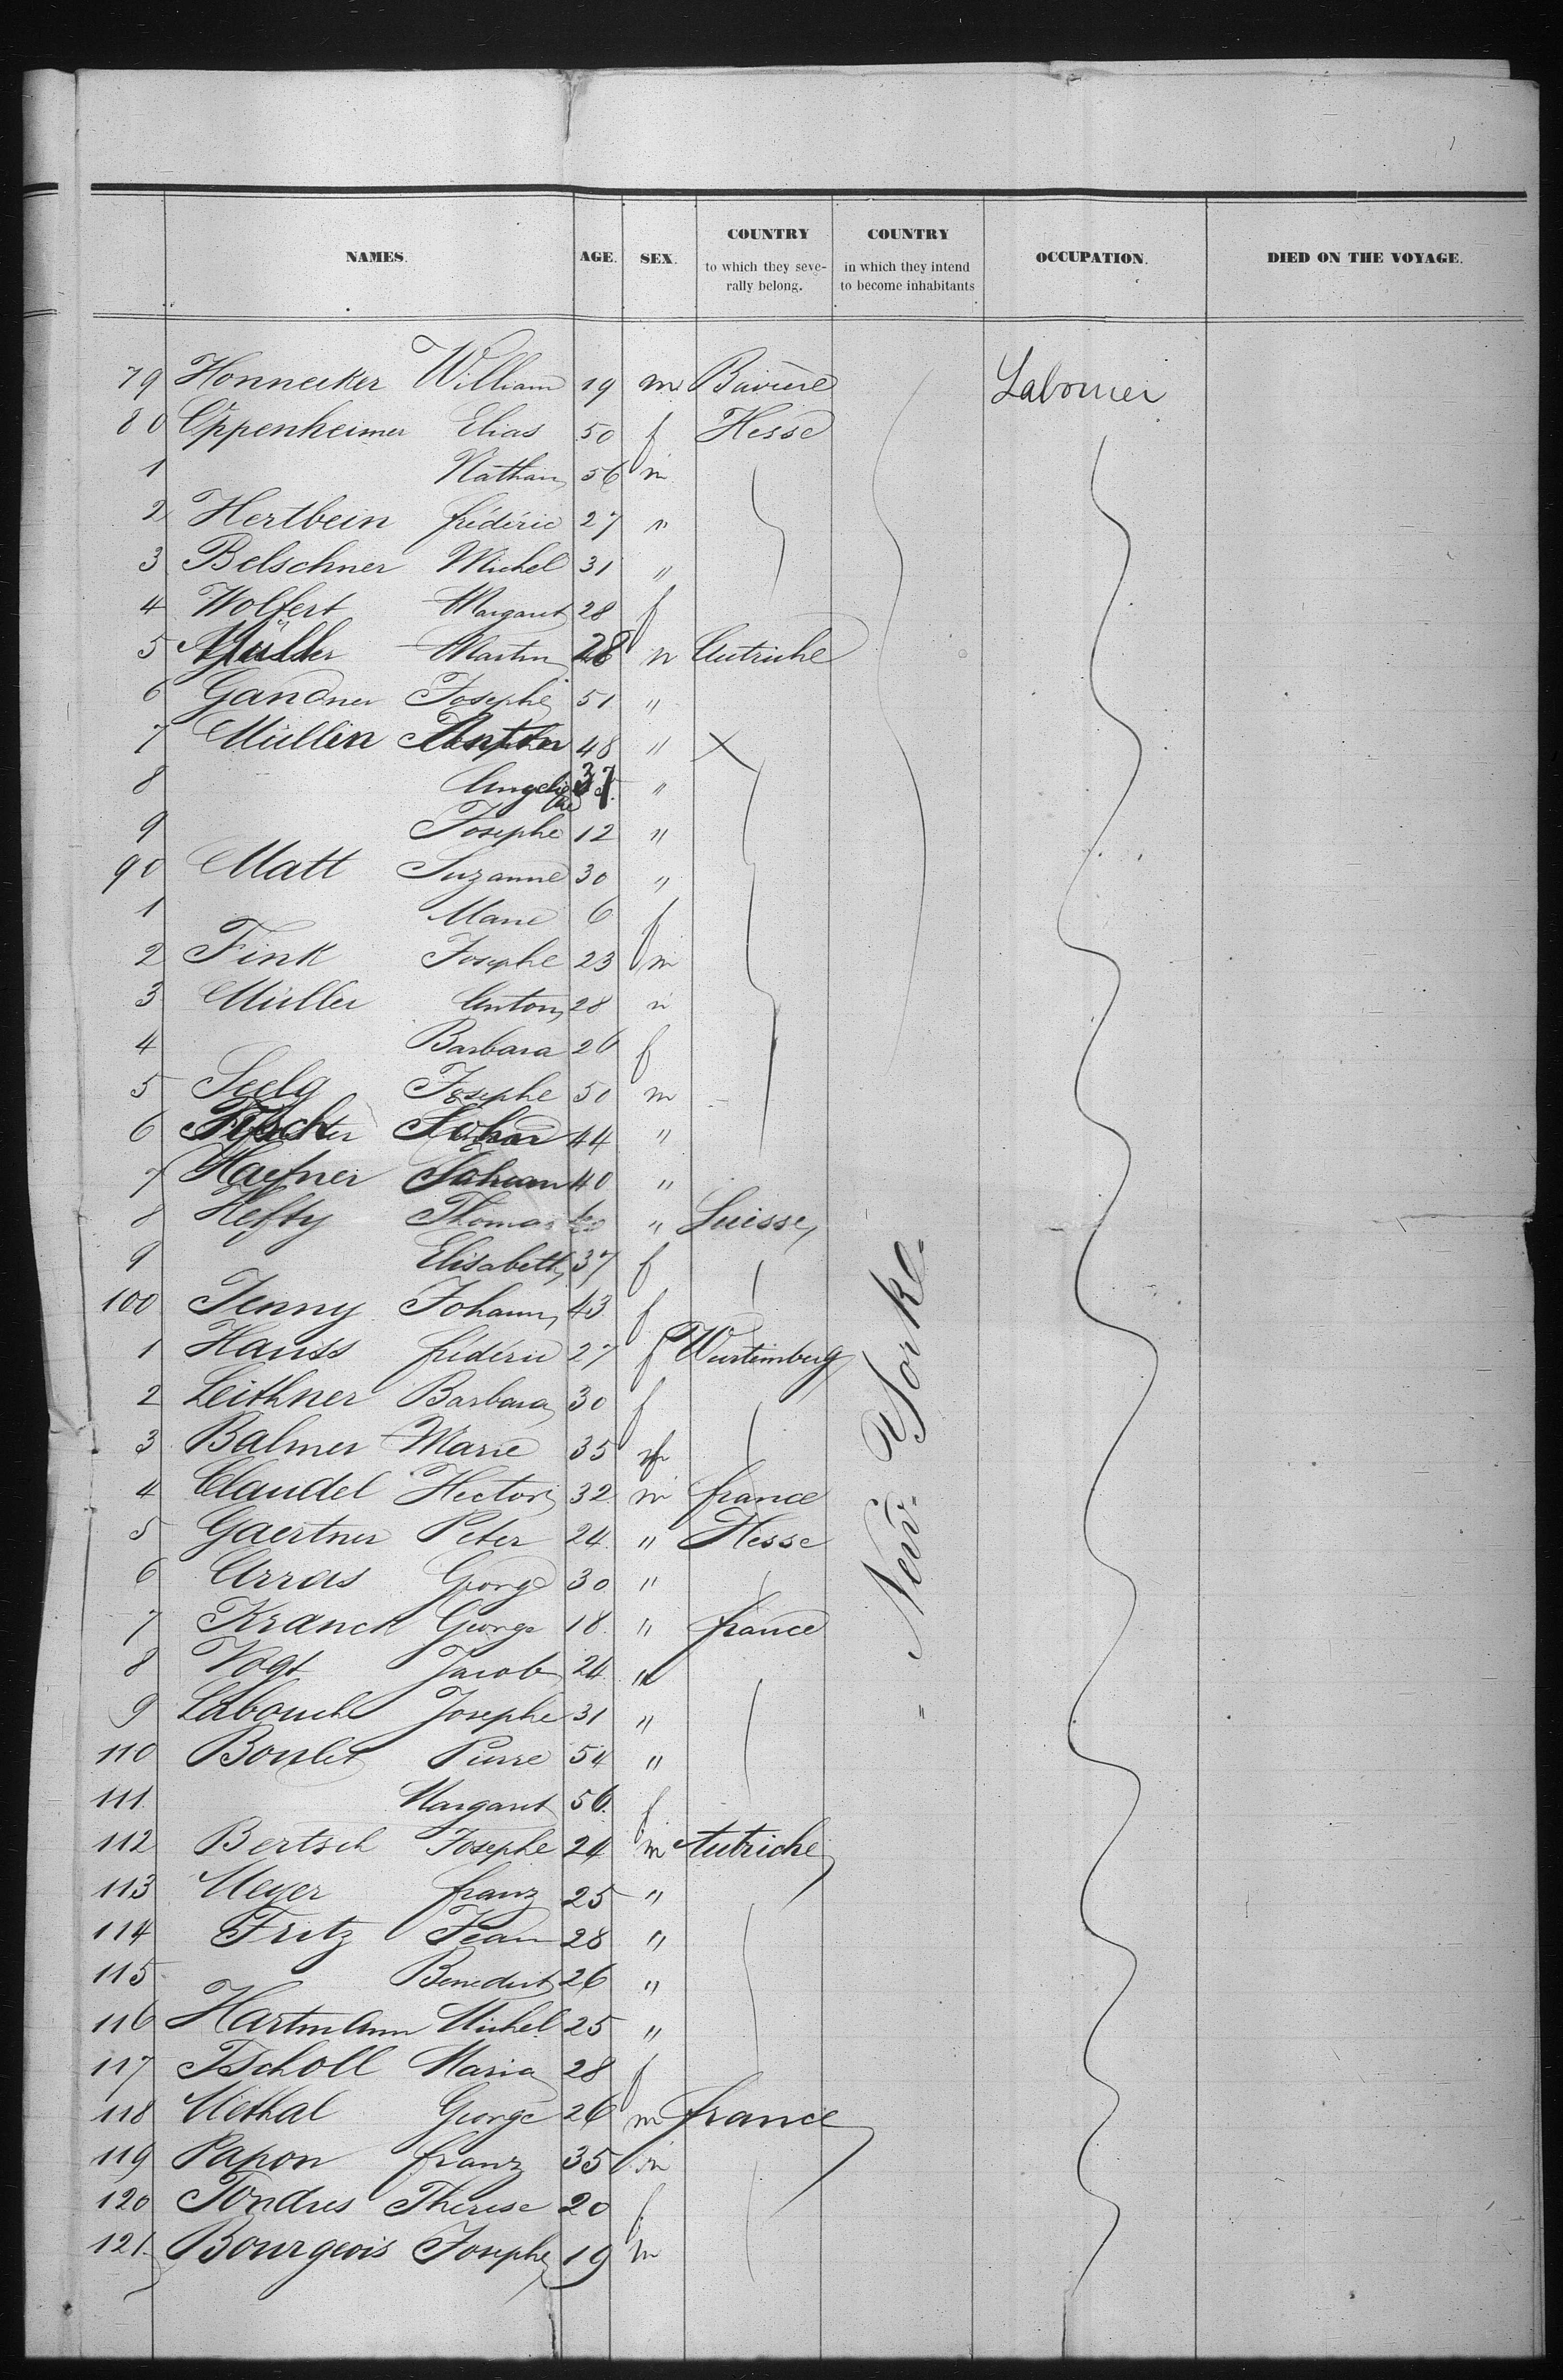 NAMES. AGE. SEX. COUNTRY to which they seve- rally belong. COUNTRY in which they intend to become inhabitants OCCUPATION. DIED ON THE VOYAGE.
79 Honnecker William 19 m Bavière Labourier
80 Oppenheimer Elias 50 f Hesse
1 Nathan 56 m
2 Hertbein frédéric 27 "
3 Belschner Michel 31 "
4 Wolfert Margaret 28 f
5 Müller Martin 28 m Autriche
6 Gandner Josephe 51 "
7 Müllin Anton 48 "
8 Angelique 37 "
9 Josephe 12 "
90 Matt Suzanne 30 "
1 Marie 6 f
2 Fink Josephe 23 m
3 Müller Anton 28 m
4 Barbara 26 f
5 Seelg Josephe 50 m
6 Johan 44 "
7 Haefner Johann 40 "
8 Hefty Thomas " Suisse
9 Elisabeth 37 f
100 Jenny Johann 43 f
1 Hauss frédéric 27 f Wurtemberg
2 Leithner Barbara 30 f
3 Balmer Marie 35 f
4 Claudel Hector 32 m france
5 Gaertner Peter 24 " Hesse
6 Arras George 30 "
7 Kranck George 18 " france
8 Vogt Jacob 24 "
9 Labouch Josephe 31 "
110 Boulet Pierre 54 "
111 Margaret 56 f
112 Bertsch Josephe 24 m Autriche
113 Meyer franz 25 "
114 Fritz Jean 28 "
115 Benedict 26 "
116 Hartmann Michel 25 "
117 Tscholl Maria 28 f
118 Methal George 26 m france
119 Papon franz 35 m
120 Tondres Therese 20 f
121 Bourgeois Josephe 19 m
" New Yorke "